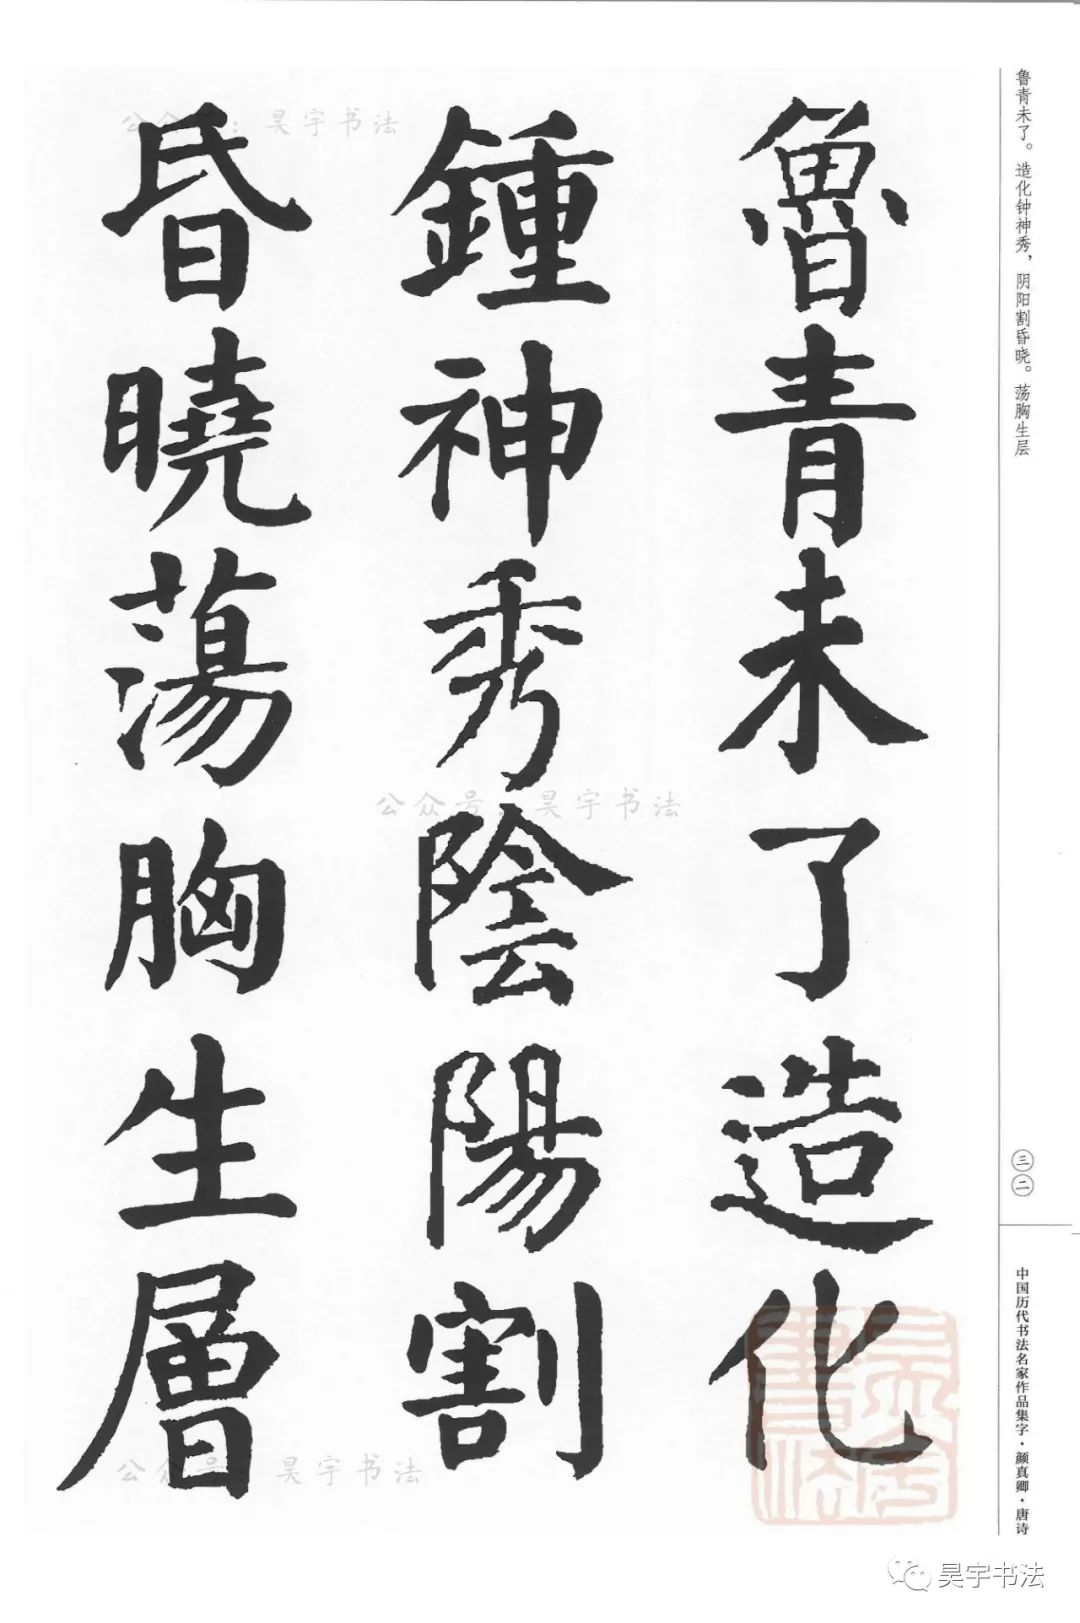 魯青未了造化
鍾神秀陰陽割
昏曉蕩胸生層
鲁青未了。造化钟神秀，阴阳割昏晓。荡胸生层
三二
中国历代书法名家作品集字·颜真卿·唐诗
公众号：昊宇书法
公众号：昊宇书法
公众号：昊宇书法
昊宇書法
昊宇书法